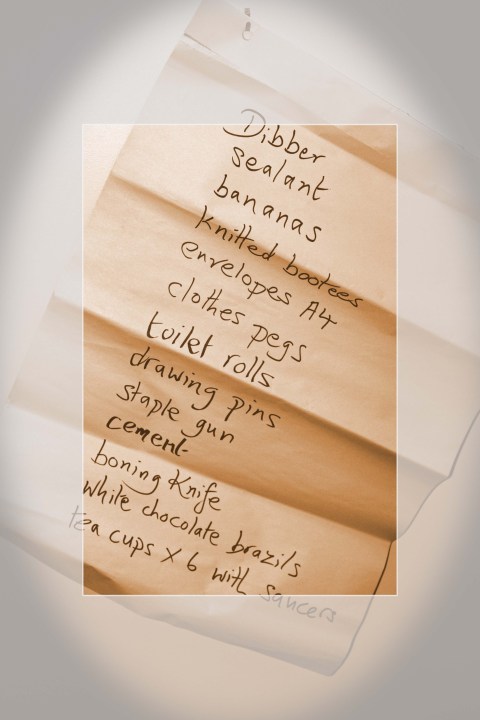 Dibber
sealant
bananas
knitted bootees
envelopes A4
clothes pegs
toilet rolls
drawing pins
staple gun
cement
boning Knife
white chocolate brazils
tea cups X 6 with saucers